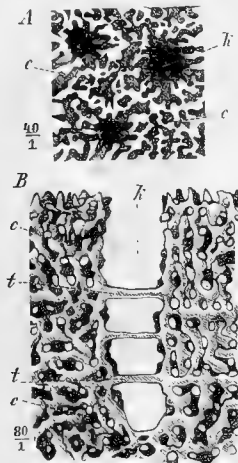 A
k
c
c
40
1
B
k
c
t
t
c
80
1